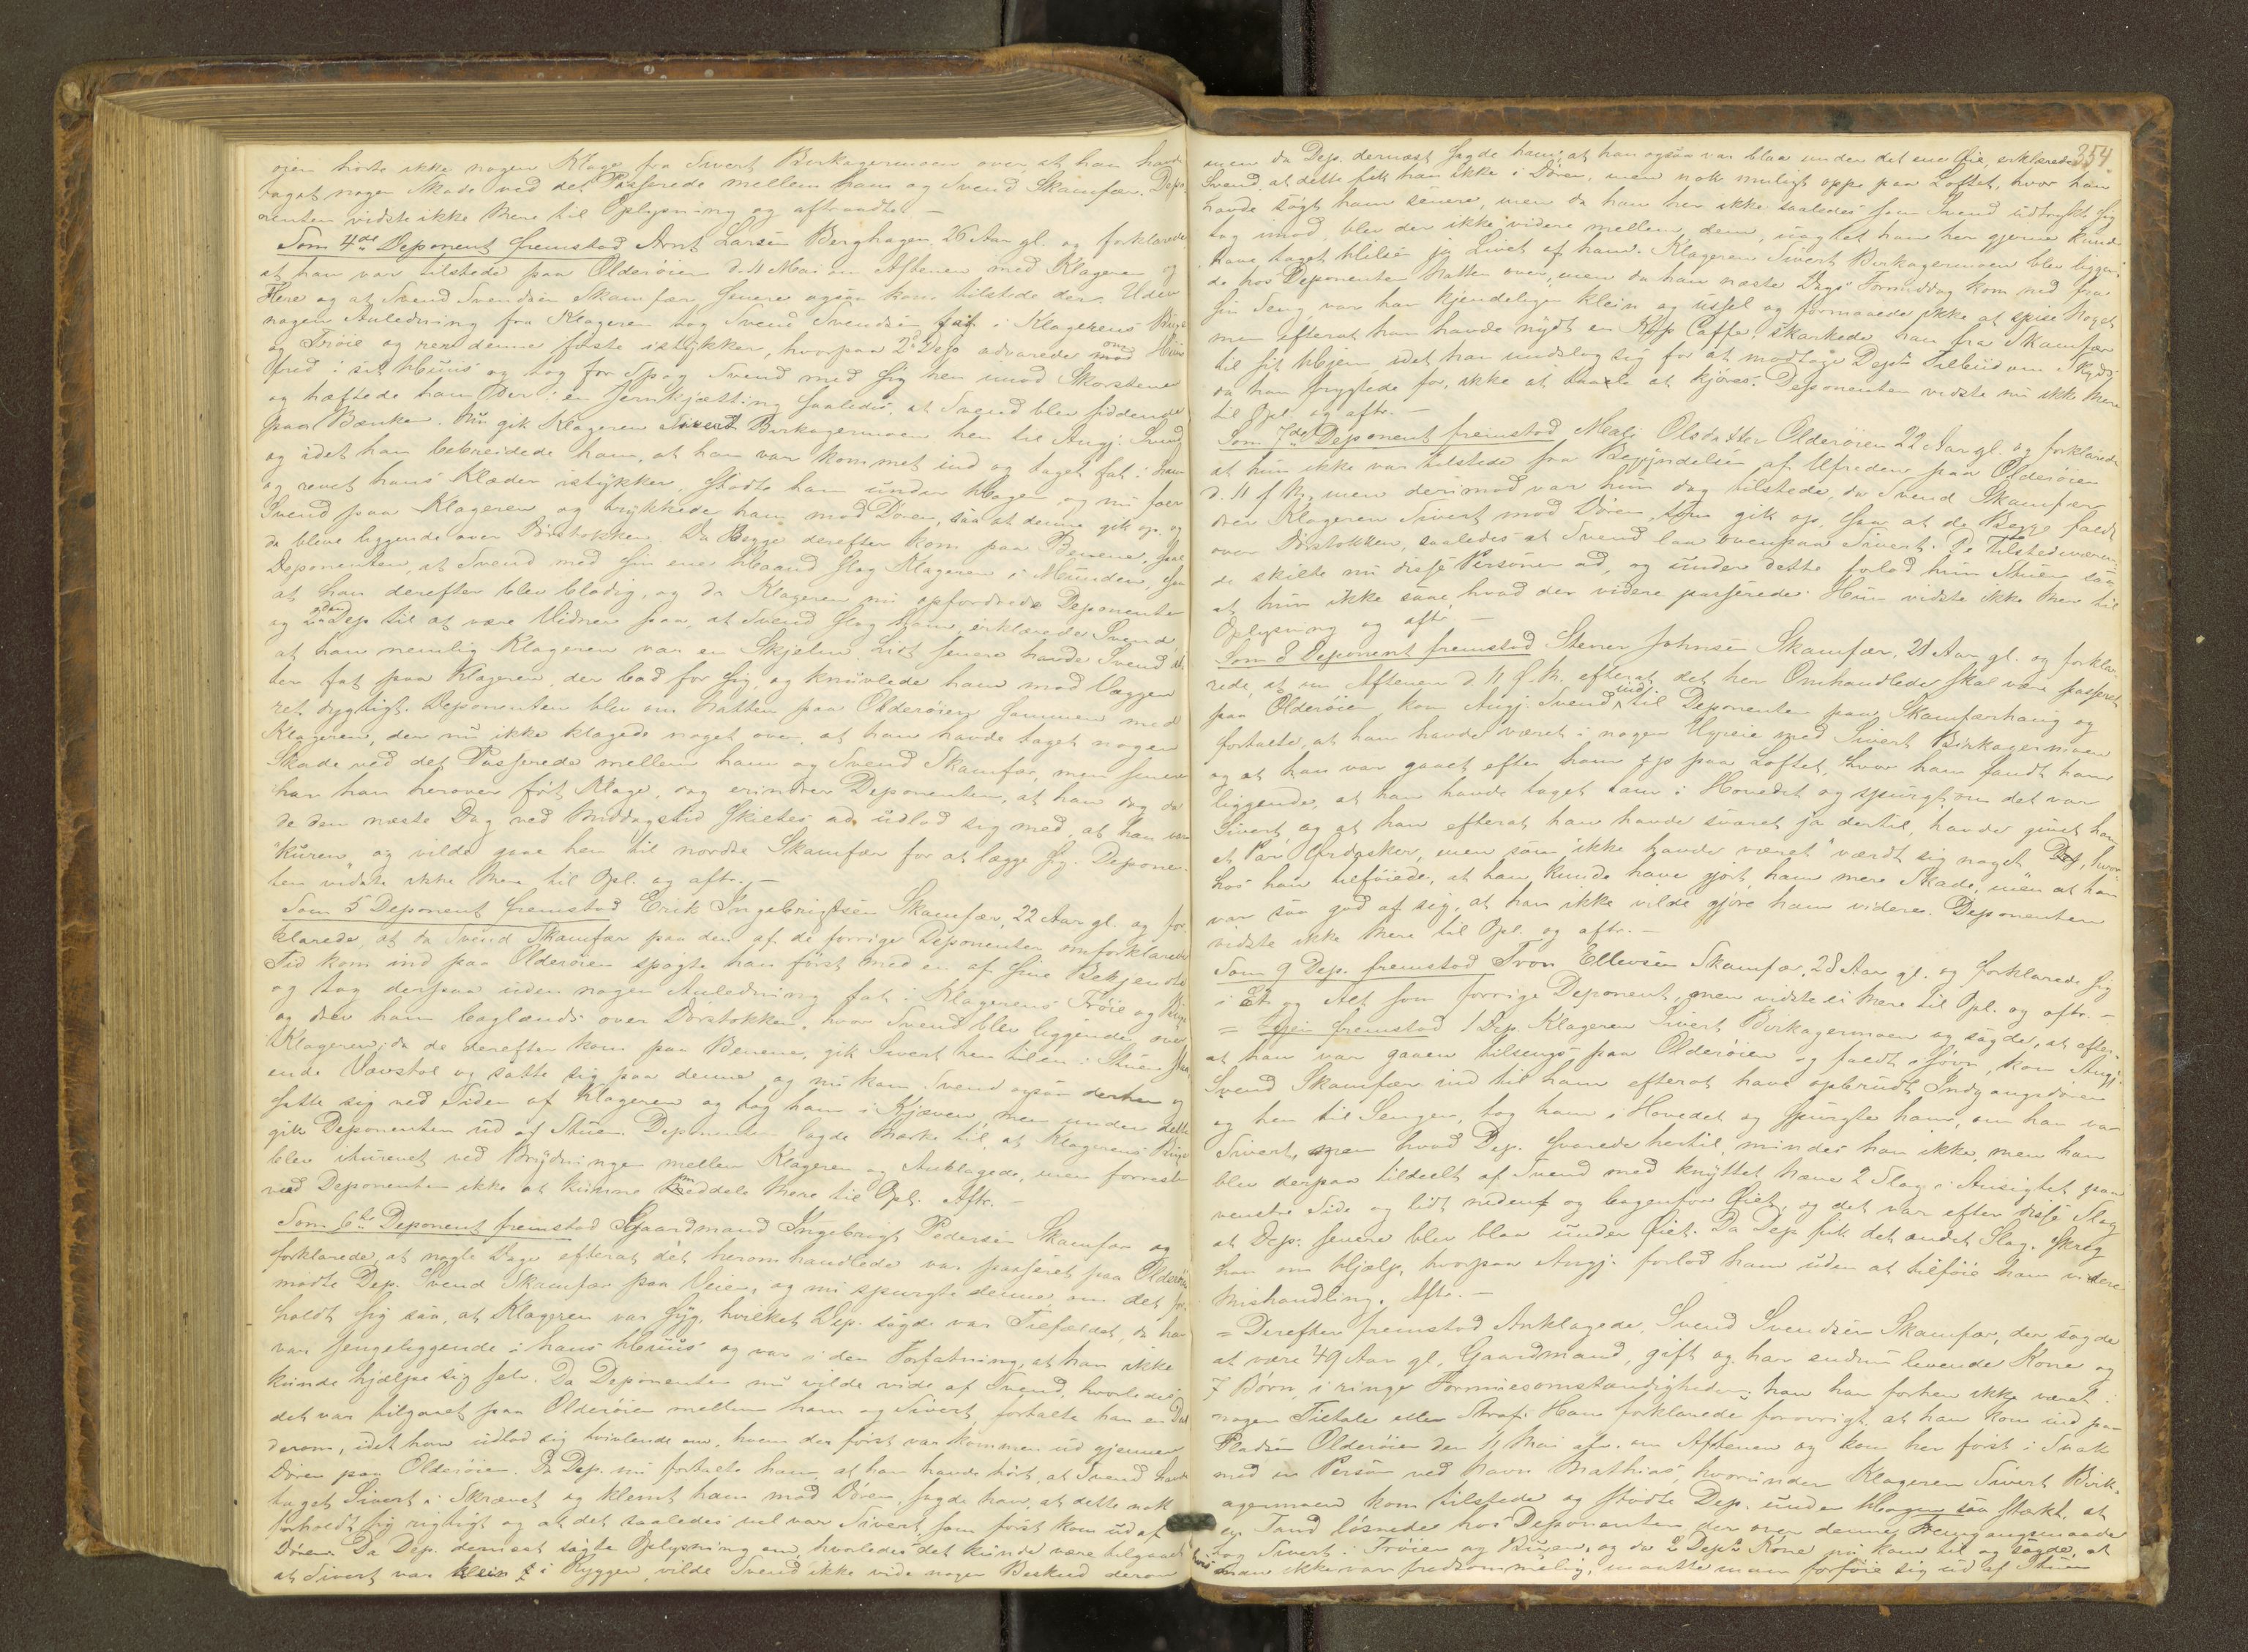 oien hørte ikke nogen Klage fra Sivert Birkagermoen over, at han havde
taget nogen Skade ved det Passerede mellem ham og Svend Skamfær. Depo-
nenten vidste ikke Mere til Oplysning og aftraadte. —
Som 4de Deponent fremstod Arnt Larsen Berghagen 26 Aar gl. og forklarede
at han var tilstede paa Olderøien d. 11 Mai om Aftenen med Klageren og
Flere og at Svend Svendsen Skamfær senere ogsaa kom tilstede der. Uden
nogen Anledning fra Klageren tog Svend Svendsen fat i Klagerens Buxe
og Trøie og rev denne første istykker, hvorpaa 2d Dep advarede om Huus
fred i sit Huus og tog for Spøg Svend med sig hen imod Skorstenen
og hæftede ham der i en Jernkjætting saaledes, at Svend blev siddende
paa Bænken. Nu gik Klageren Sivert Birkagermoen hen til Angj. Svend
og idet han bebreidede ham, at han var kommet ind og taget fat i ham
og revet hans Klæder istykker, stødte ham under Hagen og nu foer
Svend paa Klageren og trykkede ham mod Døren, saa at denne gik op og
de bleve liggende over Dørstokken. Da Begge derefter kom paa Benene, saae
Deponenten, at Svend med sin ene Haand slog Klageren i Munden, saa
at han derefter blev blodig, og da Klageren nu opfordrede Deponenten
og 2den Dep til at være Vidner paa, at Svend slog ham, erklærede Svend
at han nemlig Klageren var en Skjelm. Lidt senere havde Svend at-
ter fat paa Klageren, der bad for sig, og knuvlede ham mod Væggen
ret dygtigt. Deponenten blev om Natten paa Olderøien sammen med
Klageren, der nu ikke klagede noget over, at han havde taget nogen
Skade ved det Passerede mellem ham og Svend Skamfær, men senere
har han herover ført Klage, dog erindrer Deponenten, at han dog da
de den næste Dag ved Middagstid skiltes ad, udlod sig med, at han var
"kuren" og vilde gaae hen til nordre Skamfær for at lægge sig. Deponen-
ten vidste ikke Mere til Opl. og aftr. —
Som 5 Deponent fremstod Erik Ingebrigtsen Skamfær, 22 Aar gl. og for-
klarede, at da Svend Skamfær paa den af de forrige Deponenter omforklarede
Tid kom ind paa Olderøien spøgte han først med en af sine Bekjendte
og tog derpaa uden nogen Anledning fat i Klagerens Trøie og Buxe
og drev ham baglænds over Dørstokken, hvor Svend blev liggende over
Klageren; da de derefter kom paa Benene, gik Sivert hen til en i Stuen staa-
ende Vævstol og satte sig paa denne og nu kom Svend ogsaa derhen og
satte sig ved Siden af Klageren og tog ham i Kjæven, men under dette
gik Deponenten ud af Stuen. Deponenten lagde Mærke til, at Klagerens Buxe
blev iturevet ved Brydningen mellem Klageren og Anklagede, men forresten
ved Deponenten ikke at kunne meddele Mere til Opl. Aftr. —
Som 6te Deponent fremstod Gaardmand Ingebrigt Pedersen Skamfær og
forklarede, at nogle Dage efterat det herom handlede var passeret paa Olderøien
mødte Dep. Svend Skamfær paa Veien, og nu spurgte denne, om det for-
holdt sig saa, at Klageren var syg, hvilket Dep. sagde var Tilfældet, da han
var sengeliggende i hans Huus og var i den Forfatning, at han ikke
kunde hjælpe sig selv. Da Deponenten nu vilde vide af Svend, hvorledes
det var tilgaaet paa Olderøien mellem ham og Sivert, fortalte han en Deel
derom, idet han udlod sig tvivlende om, hvem der først var kommen ud gjennem
Døren paa Olderøien. Da Dep. nu fortalte ham, at han havde hørt, at Svend havde
taget Sivert i Skrævet og klemt ham mod Døren, sagde han, at dette nok
forholdt sig rigtigt og at det saaledes vel var Sivert, som først kom ud af
Døren. Da Dep. dernæst søgte Oplysning om, hvorledes det kunde være tilgaaet
at Sivert var klein i Ryggen, vilde Svend ikke vide nogen Beskeed derom
354
men da Dep. dernæst sagde ham, at han ogsaa var blaa under det ene Øie, erklærede
Svend, at dette fik han ikke i Døren, men nok muligt oppe paa Loftet, hvor han
havde søgt ham senere, men da han her ikke saaledes som Svend udtrykte sig
tog imod, blev der ikke videre mellem dem, uagtet han her gjerne kunde
have taget Livet af ham. Klageren Sivert Birkagermoen blev liggen-
de hos Deponenten Natten over, men da han næste Dags Formiddag kom ned fra
sin Seng, var han kjendeligen klein og ussel og formaaede ikke at spise Noget
men efterat han havde nydt en Kop Caffe, skarkede han fra Skamfær
til sit Hjem, idet han undslog sig for at modtage Dep.s Tilbud om Kyds
da han frygtede for, ikke at taale at kjøres. Deponenten vidste nu ikke Mere
til Opl. og aftr. —
Som 7de Deponent fremstod Mali Olsdatter Olderøien 22 Aar gl. og forklarede
at hun ikke var tilstede fra Begyndelsen af Ufreden paa Olderøien
d. 11 f. M., men derimod var hun dog tilstede, da Svend Skamfær
drev Klageren Sivert mod Døren, som gik op, saa at de Begge faldt
over Dørstokken, saaledes at Svend laa ovenpaa Sivert. De Tilstedeværen-
de skilte nu disse Personer ad, og under dette forlod hun Stuen saa
at hun ikke saae, hvad der videre passerede. Hun vidste ikke Mere til
Oplysning og aftr. —
Som 8 Deponent fremstod Stener Johnsen Skamfær, 21 Aar gl. og forkla-
rede, at om Aftenen d. 11 f. M. efterat det her Omhandlede skal være passeret
paa Olderøien kom Angj. Svend ind til Deponenten paa Skamfærhaug og
fortalte, at han havde været i nogen Ugreie med Sivert Birkagermoen
og at han var gaaet efter ham op paa Loftet, hvor han fandt ham
liggende, at han havde taget ham i Hovedet og spurgt, om det var
Sivert, og at han efterat han havde svaret ja dertil, havde givet ham
et Par Ørdasker, men som ikke havde været "værdt sig noget", hvor-
hos han tilføiede, at han kunde have gjort ham mere Skade, men at han
var saa god af sig, at han ikke vilde gjøre ham videre. Deponenten
vidste ikke Mere til Opl. og aftr. —
Som 9 Dep. fremstod Tron Ellevsen Skamfær, 28 Aar gl. og forklarede sig
i Et og Alt som forrige Deponent, men vidste ei Mere til Opl. og aftr. —
= Igjen fremstod 1 Dep. Klageren Sivert Birkagermoen og sagde, at efter-
at han var gaaen tilsengs paa Olderøien og faldt i Søvn, kom Angj.
Svend Skamfær ind til ham efterat have opbrudt Indgangsdøren
og hen til Sengen, tog ham i Hovedet og spurgte ham, om han var
Sivert, men hvad Dep. svarede hertil, mindes han ikke, men han
blev derpaa tildeelt af Svend med knyttet Næve 2 Slag i Ansigtet paa
venstre Side og lidt nedenf og bagenfor Øiet, og det var efter disse Slag
at Dep. senere blev blaa under Øiet. Da Dep fik det andet Slag, skreg
han om Hjælp, hvorpaa Angj. forlod ham uden at tilføie ham videre
Mishandling. Aftr. —
= Derefter fremstod Anklagede, Svend Svendsen Skamfær, der sagde
at være 49 Aar gl, Gaardmand, gift og har endnu levende Kone og
7 Børn, i ringe Formuesomstændigheder; han har forhen ikke været i
nogen Tiltale eller Straf. Han forklarede forøvrigt, at han kom ind paa
Pladsen Olderøien den 11 Mai sfr. om Aftenen og kom her først i Snak
med en Person ved Navn Mathias, hvorunder Klageren Sivert Birk-
agermoen kom tilstede og stødte Dep. under Hagen saa stærkt, at
en Tand løsnede hos Deponenten der over denne Fremgangsmaade
tog Sivert i Trøien og Buxen, og da 2 Dep.s Kone nu kom til og sagde, at
hvis man ikke var fredsommelig, maatte man forføie sig ud af Stuen